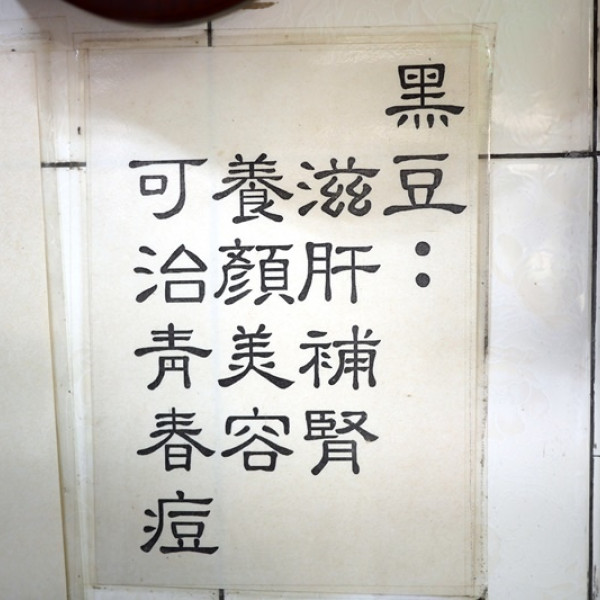 黑豆：
滋肝補腎
養顏美容
可治青春痘